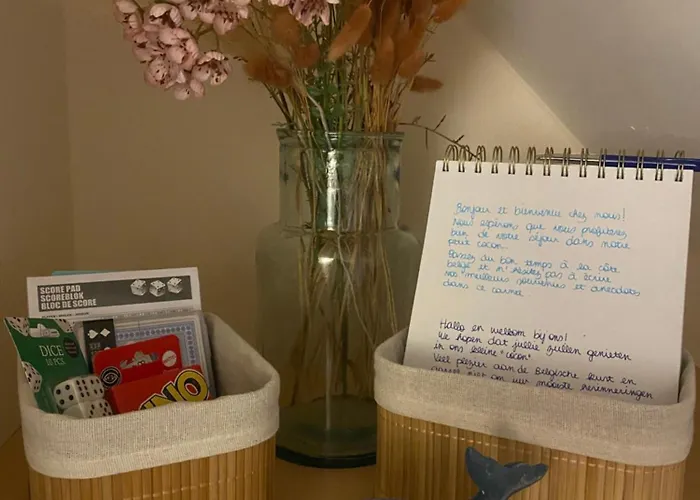 SCORE PAD
SCOREBLOK
BLOC DE SCORE
DICE
UNO
Bonjour et bienvenue chez nous!
Nous espérons que vous profiterez
bien de votre séjour dans notre
petit cocon.
Passez du bon temps à la côte
belge et n'hésitez pas à écrire
vos "meilleurs souvenirs et anecdotes
dans ce carnet
Hallo en welkom bij ons!
We hopen dat jullie zullen genieten
in ons kleine "cocon"
Veel plezier aan de Belgische kust en
niet om uw mooiste herinneringen